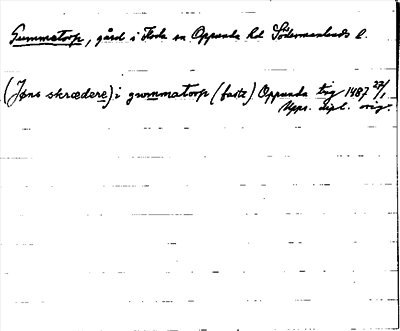 Gummatorp, gård i Floda sn Oppunda hd Södermanlands l.
(Jøns skrædere) i gummatorp (faste) Oppunda tig 1487 27/1
Upps. dipl. orig.